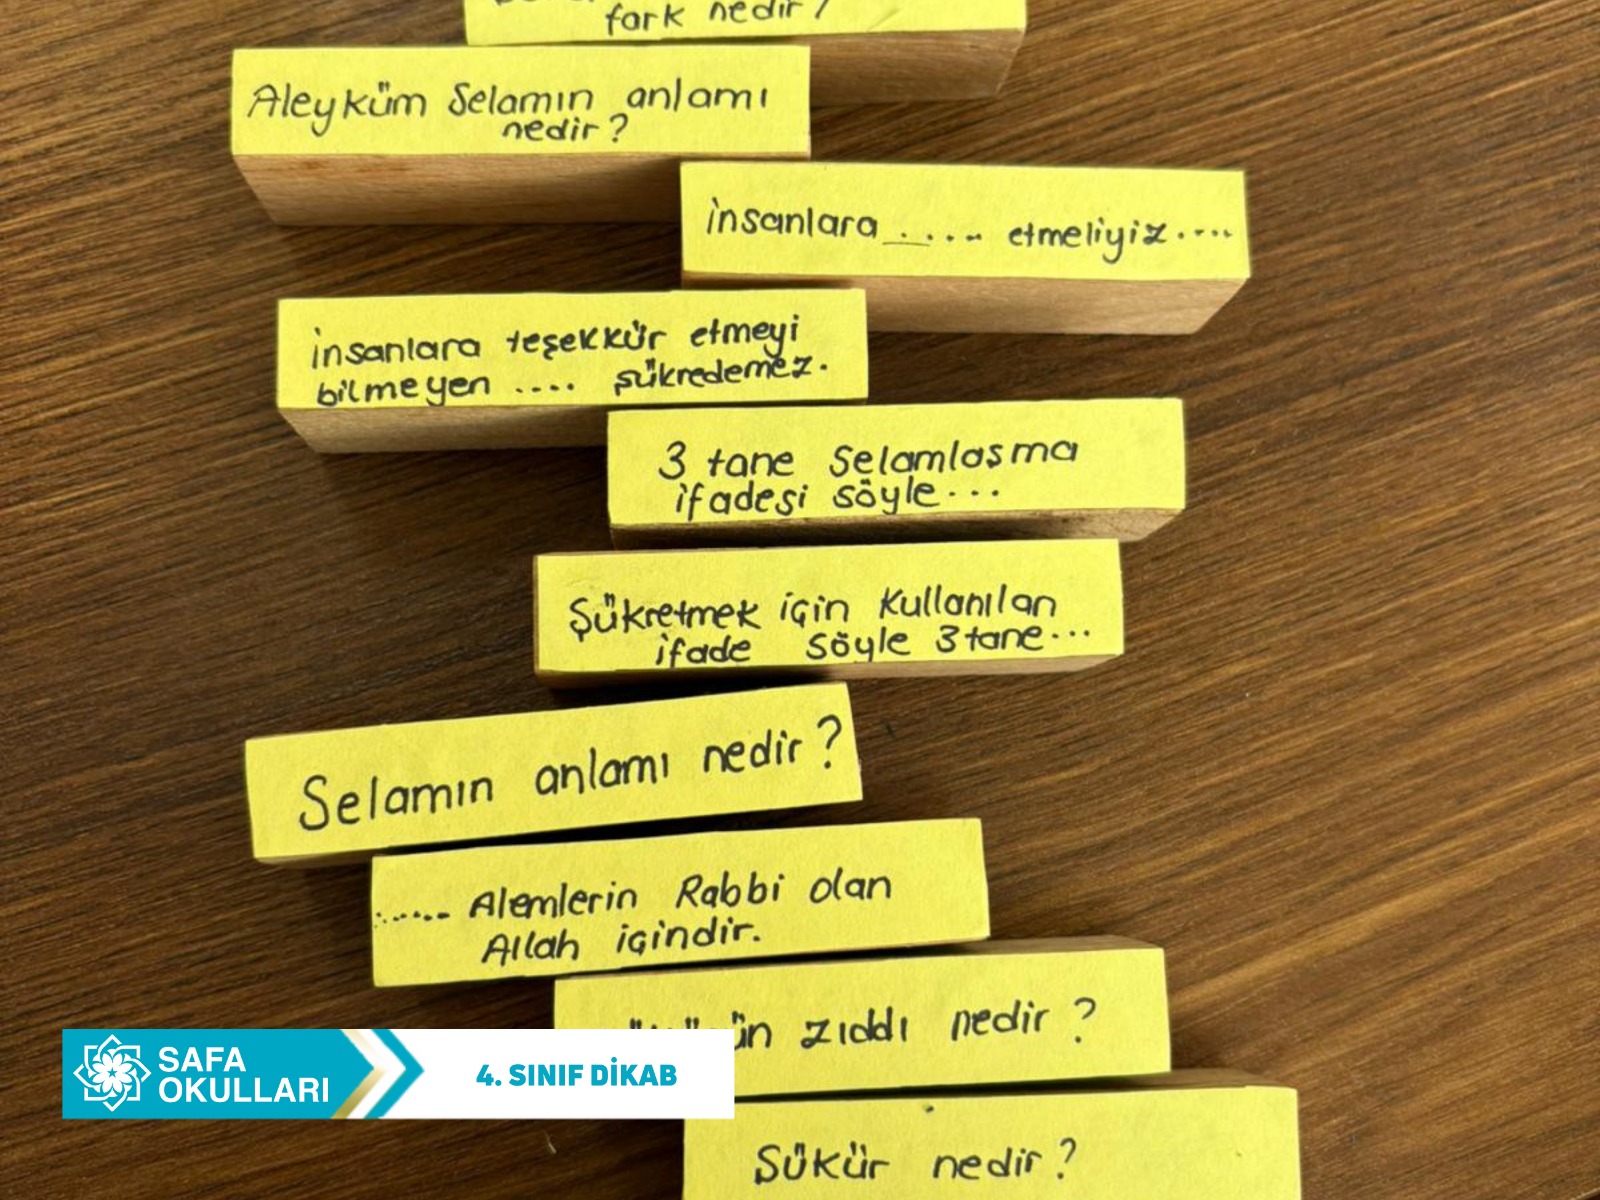 fark nedir?
Aleyküm Selamın anlamı
nedir?
İnsanlara ..... etmeliyiz....
İnsanlara teşekkür etmeyi
bilmeyen .... şükredemez.
3 tane Selamlaşma
ifadesi söyle...
Şükretmek için Kullanılan
ifade söyle 3 tane...
Selamın anlamı nedir?
...... Alemlerin Rabbi olan
Allah içindir.
zıddı nedir?
Şükür nedir?
SAFA
OKULLARI
4. SINIF DİKAB